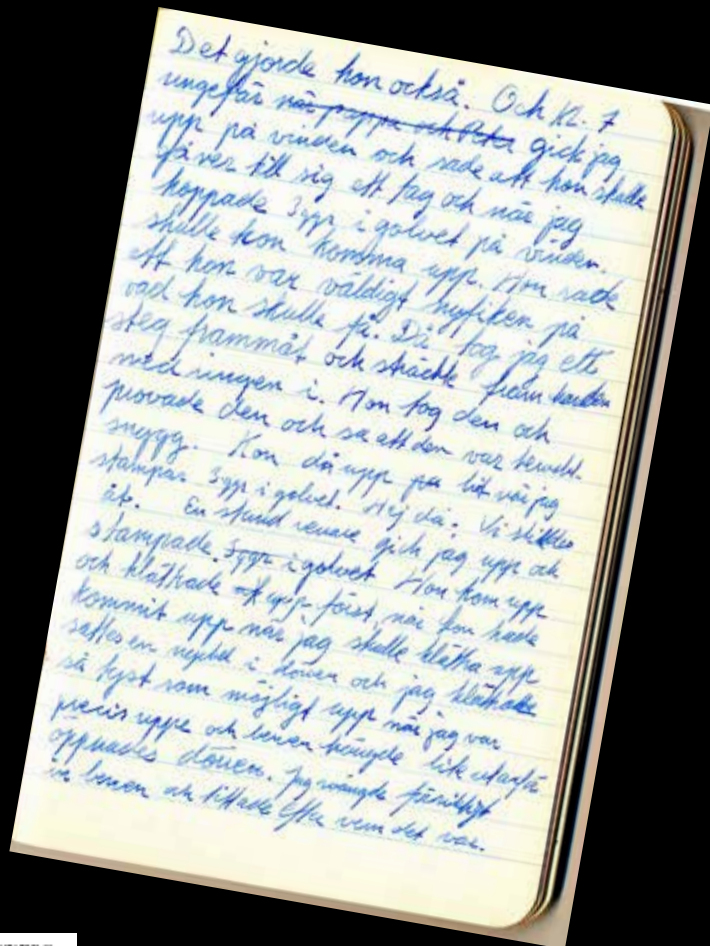 Det gjorde hon också. Och kl. 7
ungefär när pappa och gick jag
upp på vinden och sade att hon skulle
till sig ett tag och när jag
hoppade 3ggr i golvet på vinden.
skulle hon komma upp. Hon sade
att hon var väldigt nyfiken på
vad hon skulle få. Då tog jag ett
steg frammåt och sträckte fram handen
med ringen i. Hon tog den och
provade den och sa att den var
snygg. Kom då upp när jag
stampar 3ggr i golvet. Hej då. Vi skildes
åt. En stund senare gick jag upp och
stampade 3ggr i golvet Hon kom upp
och klättrade upp först, när hon hade
kommit upp när jag skulle klättra upp
sattes en nyckel i dörren och jag klättrade
så tyst som möjligt upp när jag var
precis uppe och benen hängde lite utanför
öppnades dörren. Jag svängde försiktigt
in benen och tittade efter vem det var.